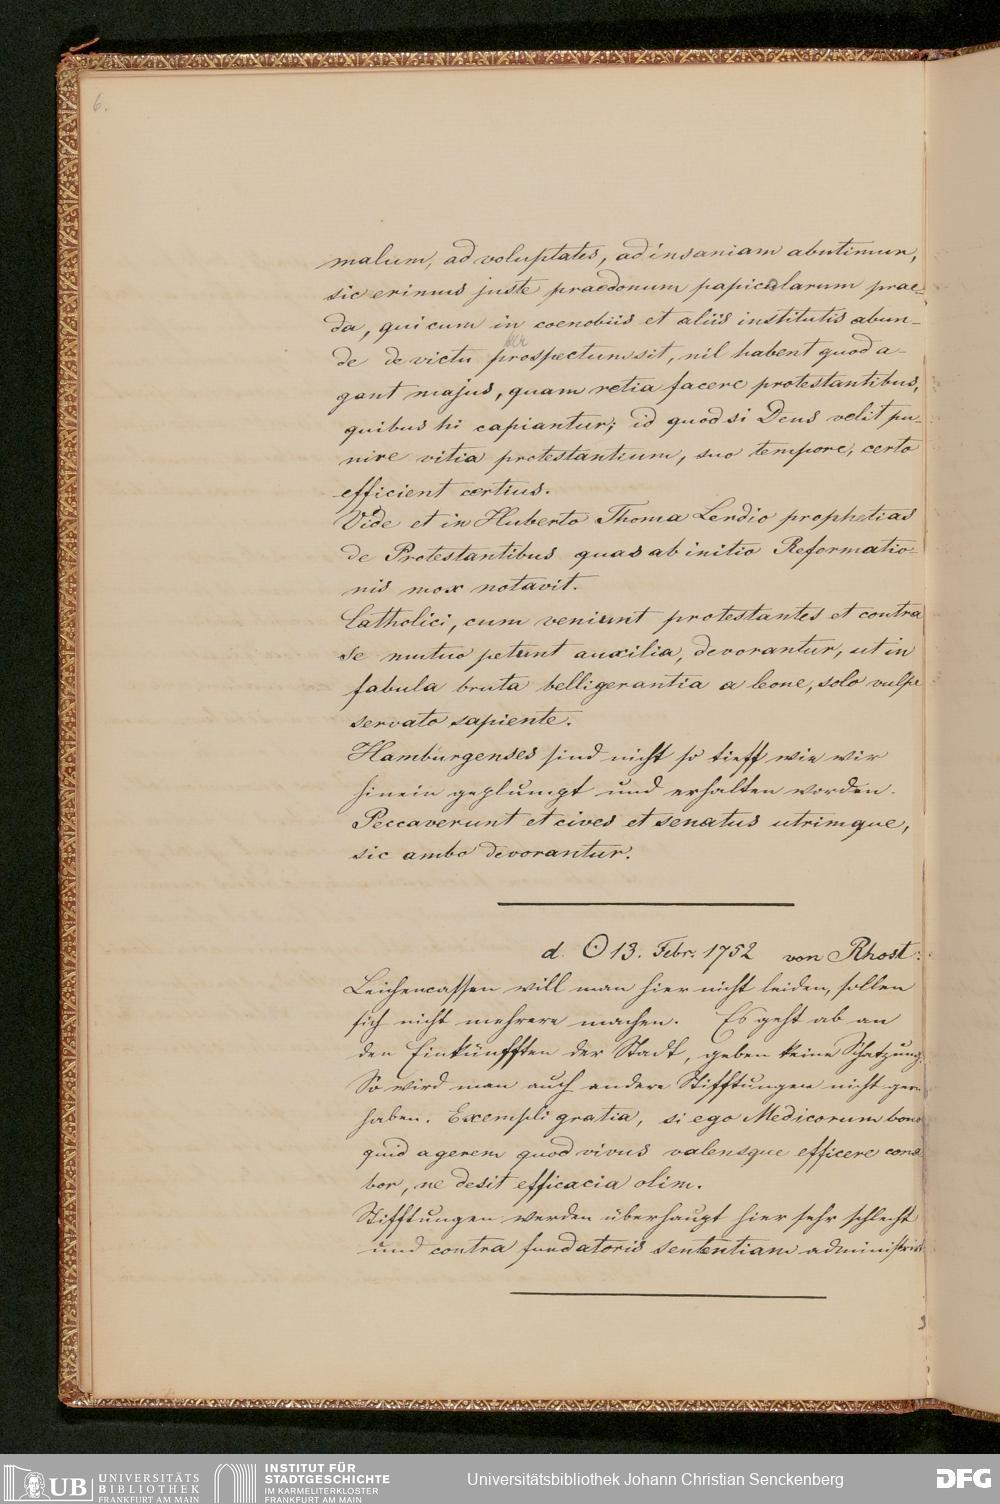 6.
malum, ad voluptates, ad insaniam abutimur,
sic erimus juste praedonum papicolarum prae-
da, qui cum in coenobiis et aliis institutis abun-
de de victu prospectum sit, nil habent quod a-
gant majus, quam retia facere protestantibus,
quibus hi capiantur; id quod si Deus velit pu-
nire vitia protestantium, suo tempore, certo
efficient certius.
Vide et in Huberto Thoma Leodio prophetias
de Protestantibus quas ab initio Reformatio-
nis mox notavit.
Catholici, cum veniunt protestantes et contra
se mutuo petunt auxilia, devorantur, ut in
fabula bruta belligerantia a leone, solo vulpe
servato sapiente.
Hamburgenses sind nicht so tieff wie wir
hinein geplumpt und erhalten worden.
Peccaverunt et cives et senatus utrimque,
sic ambo devorantur.
d. ☉ 13. Febr. 1752 von Rhost:
Leichencassen will man hier nicht leiden, sollen
sich nicht mehrere machen. Es geht ab an
den Einkünfften der Stadt, geben keine Schatzung.
So wird man auch andere Stifftungen nicht gern
haben. Exempli gratia, si ego Medicorum bono
quid agerem quod vivus valensque efficere cona-
bor, ne desit efficacia olim.
Stifftungen werden überhaupt hier sehr schlecht
und contra fundatoris sententiam administrirt
UB UNIVERSITÄTS
BIBLIOTHEK
FRANKFURT AM MAIN
INSTITUT FÜR
STADTGESCHICHTE
IM KARMELITERKLOSTER
FRANKFURT AM MAIN
Universitätsbibliothek Johann Christian Senckenberg
DFG